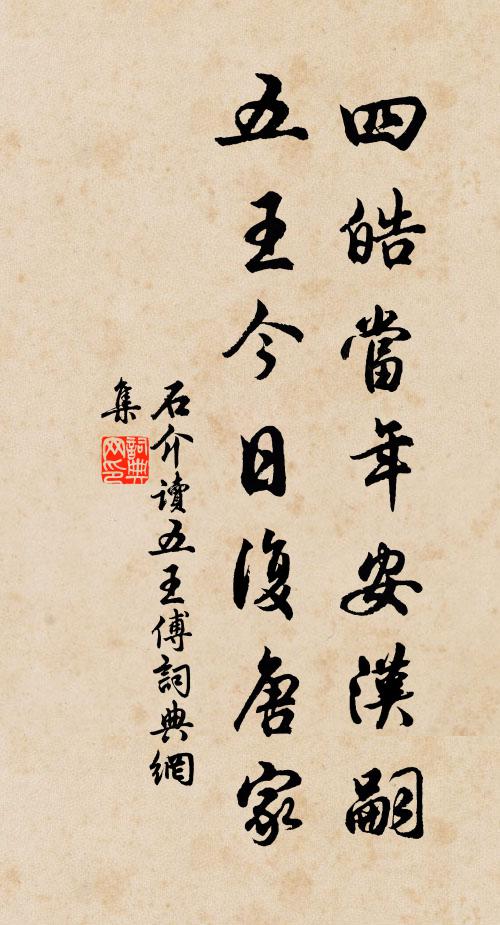 四皓當年安漢嗣
五王今日復唐家
石介讀五王傅詞典網
集
詞典
网印